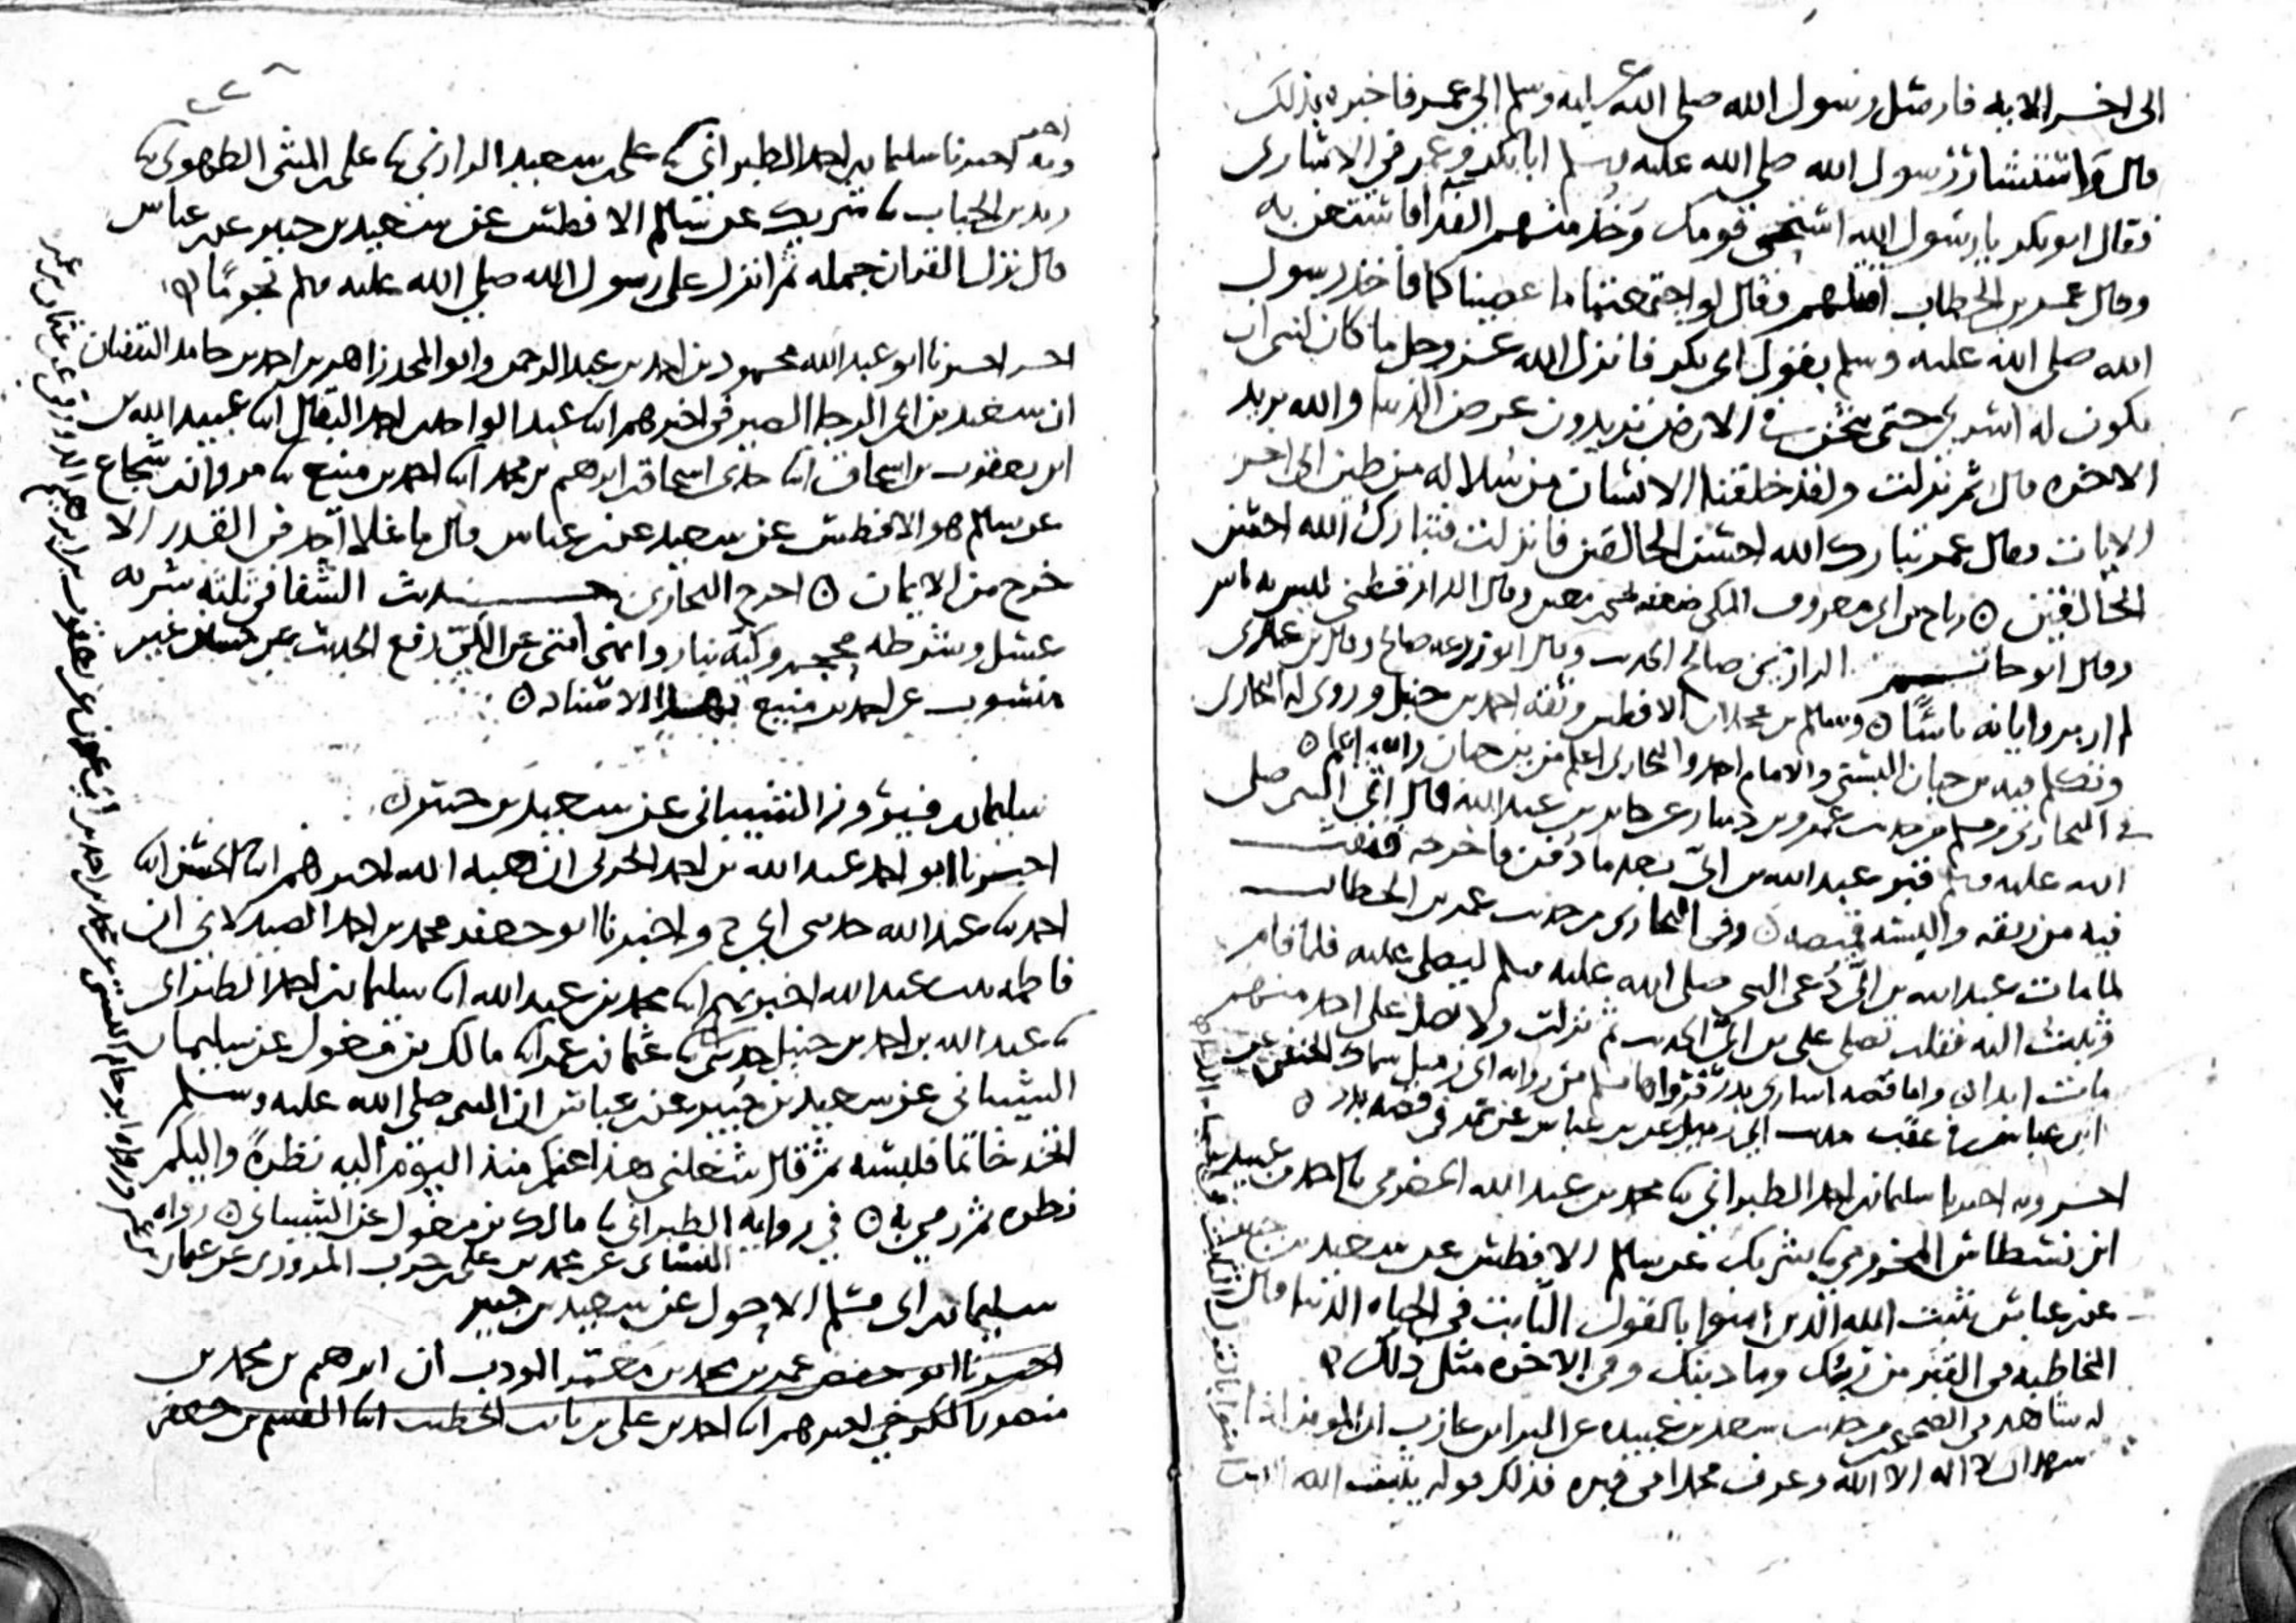 الى اخر الايه فارسل رسول الله صلى الله عليه وسلم الى عمر فاخبره بذلك
قال واستشار رسول الله صلى الله عليه وسلم ابا بكر وعمر في الاسارى
فقال ابو بكر يا رسول الله استحي قومك وخذ منهم الفدا فاستعن به
وقال عمر بن الخطاب اقتلهم فقال لو اجتمعتما ما عصيناكما فاخذ رسول
الله صلى الله عليه وسلم بقول ابي بكر فانزل الله عز وجل ما كان لنبي ان
يكون له اسرى حتى يثخن في الارض تريدون عرض الدنيا والله يريد
الاخره قال ثم نزلت ولقد خلقنا الانسان من سلالة من طين الى اخر
الايات فقال عمر تبارك الله احسن الخالقين فانزلت فتبارك الله احسن
الخالقين ٥ رباح بن ابي معروف المكي ضعفه يحيى بن معين وقال الدارقطني ليس به باس
وقال ابو حاتم الرازي صالح الحديث وقال ابو زرعه صالح وقال بن عدي
لم ار بروايته باسا ٥ وسالم بن عجلان الافطس وثقه احمد بن حنبل وروى له البخاري
وتكلم فيه بن حبان البستي والامام احمد والبخاري اعلم من بن حبان والله اعلم ٥
في البخاري ومسلم من حديث عمرو بن دينار عن جابر بن عبد الله قال اتى النبي صلى
الله عليه وسلم قبر عبد الله بن ابيّ بعد ما دفن فاخرجه فنفث
فيه من ريقه والبسه قميصه ٥ وفي البخاري من حديث عمر بن الخطاب
لما مات عبد الله بن ابيّ دُعي النبي صلى الله عليه وسلم ليصلي عليه فلما قام
وثبت اليه فقلت تصلي على بن ابيّ الحديث ثم نزلت ولا تصل على احد منهم
مات ابدا واما قصه اسارى بدر فرواها مسلم من روايه ابي زميل سماك الحنفي عن
ابن عباس في عقب حديث ابي زميل عن بن عباس عن عمر في قصه بدر ٥
اخبر وبه اخبرنا سليمان بن احمد الطبراني ثنا محمد بن عبد الله الحضرمي ثنا احمد بن
المخزومي ثنا شريك عن سالم الافطس عن سعيد بن جبير
عن بن عباس يثبت الله الذين امنوا بالقول الثابت في الحياه الدنيا قال
المخاطبه في القبر من ربك وما دينك وفي الاخره مثل ذلك ٥
له شاهد في الصحيح من حديث سعد بن عبيده عن البرا بن عازب ان المومن اذا
شهد ان لا اله الا الله وعرف محمدا في قبره فذلك قوله يثبت الله الذين امنوا بالقول الثابت
وبه اخبرنا سليمان بن احمد الطبراني ثنا علي بن سعيد الرازي ثنا علي بن المثنى الطهوي ثنا
زيد بن الحباب ثنا شريك عن سالم الافطس عن سعيد بن جبير عن بن عباس
قال نزل القران جمله ثم انزل على رسول الله صلى الله عليه وسلم نجوما ٥
اخبر اخبرنا ابو عبد الله محمود بن احمد بن عبد الرحمن وابو المجد زاهر بن احمد بن حامد الثقفيان
ان سعيد بن ابي الرجا الصيرفي اخبرهم ابنا عبد الواحد بن احمد البقال ابنا عبيد الله بن
بن يعقوب بن اسحاق ابنا جدي اسحاق بن ابرهيم بن محمد ابنا احمد بن منيع ثنا مروان بن شجاع
عن سالم هو الافطس عن سعيد عن بن عباس قال ما غلا احد في القدر الا
خرج من الايمان ٥ اخرج البخاري حديث الشفا في ثلثه شربه
عسل وشرطه محجم وكيّه بنار وانهى امتي عن الكيّ رفع الحديث عن حسين غير
منسوب عن احمد بن منيع بهذا الاسناد ٥
سليمان بن فيروز الشيباني عن سعيد بن جبير ٥
اخبرنا ابو احمد عبد الله بن احمد الحربي ان هبه الله اخبرهم ابنا الحسن ابنا
احمد ثنا عبد الله حدثني ابي ح واخبرنا ابو جعفر محمد بن احمد الصيدلاني ان
فاطمه بنت عبد الله اخبرتهم ابنا محمد بن عبد الله ابنا سليمان بن احمد الطبراني
ثنا عبد الله بن احمد بن حنبل حدثني ابي ثنا عثمان بن عمر ابنا مالك بن مغول عن سليمان
الشيباني عن سعيد بن جبير عن بن عباس ان النبي صلى الله عليه وسلم
اتخذ خاتما فلبسه ثم قال شغلني هذا عنكم منذ اليوم اليه نظرة واليكم
نظره ثم رمي به ٥ في روايه الطبراني ثنا مالك بن مغول عن الشيباني ٥ رواه
النسائي عن محمد بن علي بن حرب المروزي عن عثمان بن عمر ورواه ابو حاتم البستي عن محمد بن احمد بن ابي عون عن يعقوب بن ابرهيم الدورقي عن عثمان بن عمر
سليمان بن ابي مسلم الاحول عن سعيد بن جبير
اخبرنا ابو حفص عمر بن محمد بن معمر المودب ان ابرهيم بن محمد بن
منصور الكرخي اخبرهم ابنا احمد بن علي بن ثابت الخطيب ابنا القسم بن جعفر